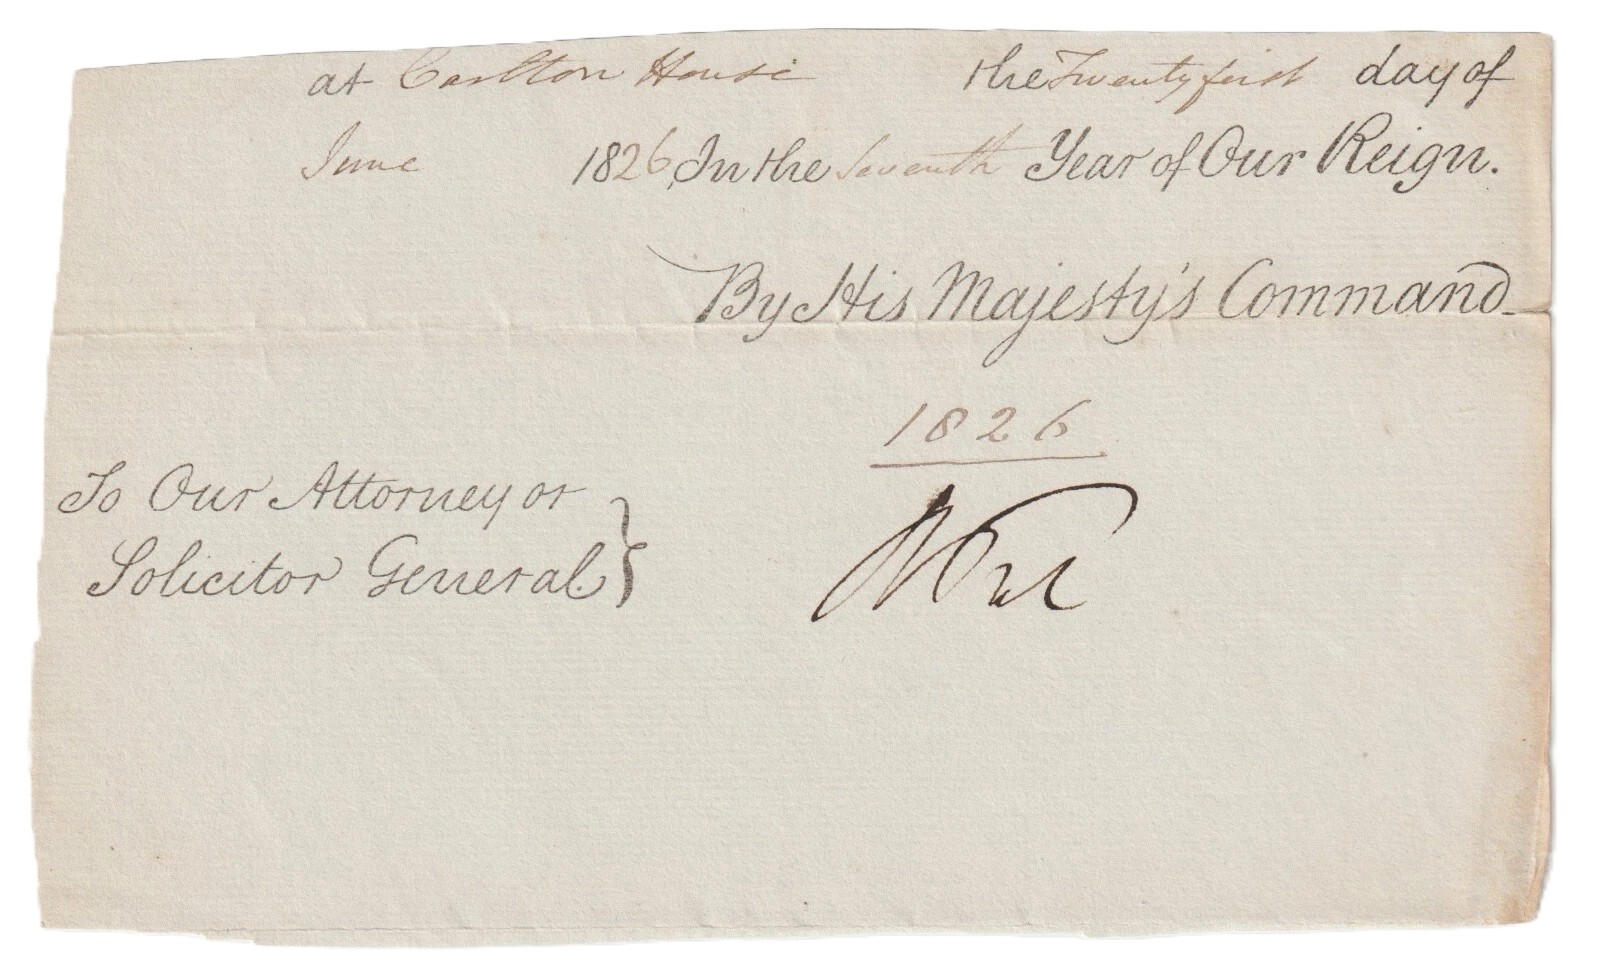 at Carlton House the Twenty first day of
June 1826, In the Seventh Year of Our Reign.
By His Majesty's Command_
1826
To Our Attorney or
Solicitor General. }